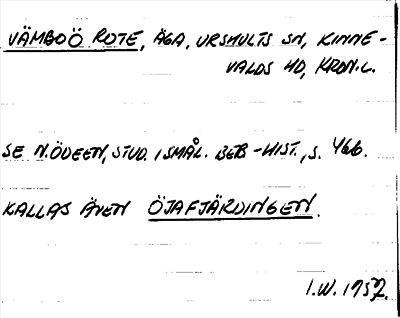 VÄMBOÖ ROTE, ÄGA, URSHULTS SN, KINNE-
VALDS HD, KRON. L.
SE N. ÖDEEN, STUD. I SMÅL. BEB-HIST., S. 466.
KALLAS ÄVEN ÖJAFJÄRDINGEN.
I.W. 1957.